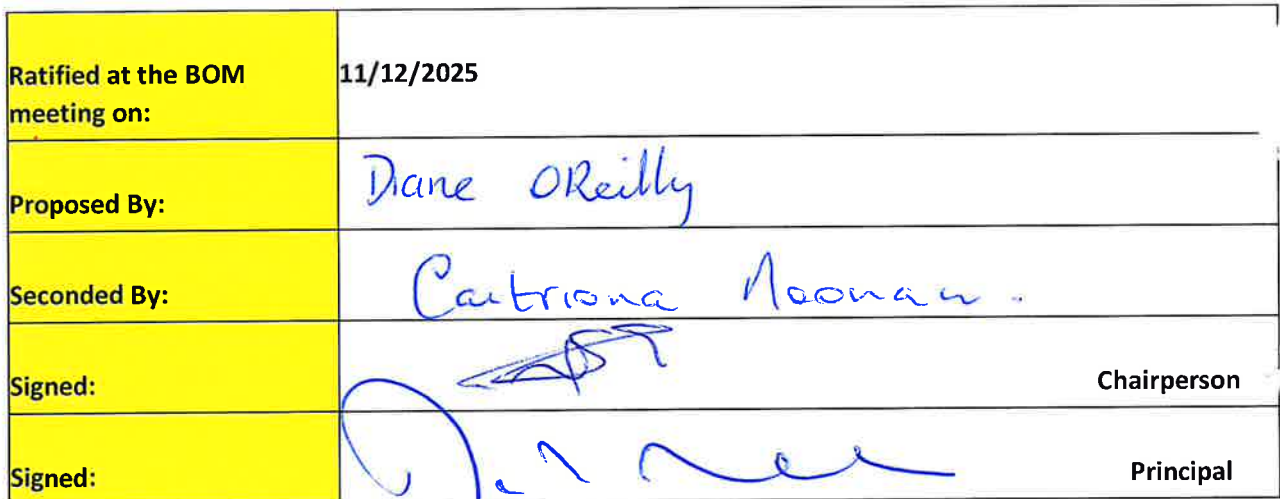 Ratified at the BOM
meeting on:
11/12/2025
Proposed By:
Diane OReilly
Seconded By:
Caitriona Noonan.
Signed:
Chairperson
Signed:
Principal